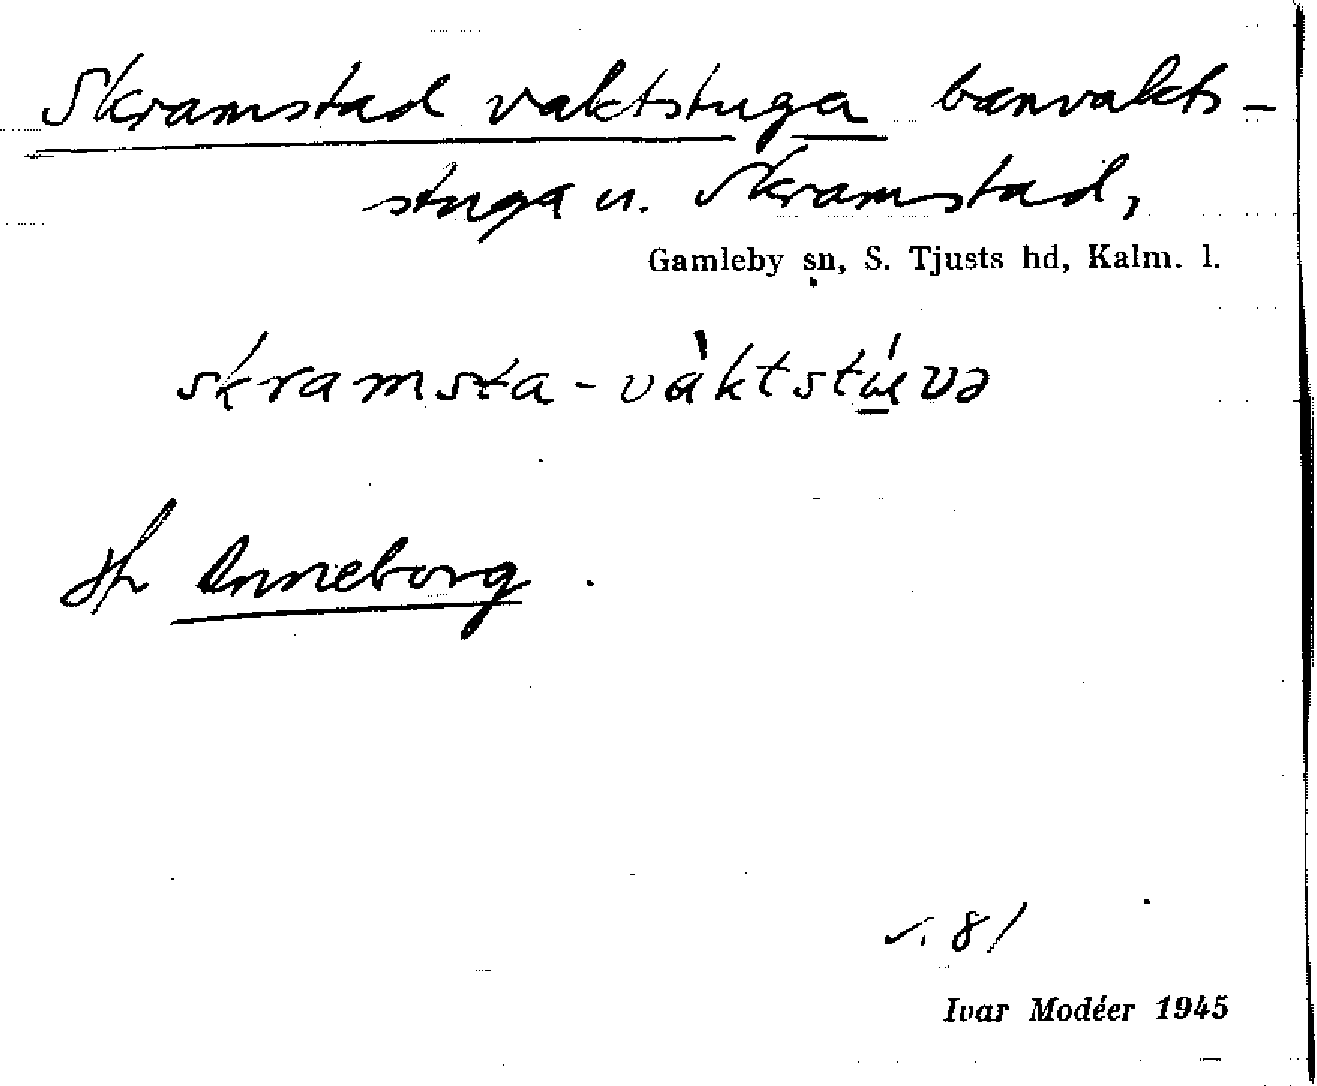 Skramstad vaktstuga banvakts-
stuga u. Skramstad,
Gamleby sn, S. Tjusts hd, Kalm. l.
skramsta-vàktstúvə
Jfr Anneborg.
s. 81
Ivar Modéer 1945